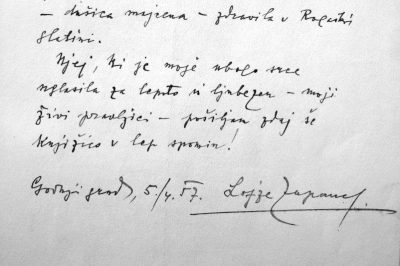 – dušica majcena – zdravila v Rogaški
Slatini.
Njej, ki je moje ubogo srce
uglasila za lepoto in ljubezen – moji
živi pravljici – pošiljam zdaj še
knjižico v lep spomin!
Gornji grad, 5./4. 57. Lojze Zupanc